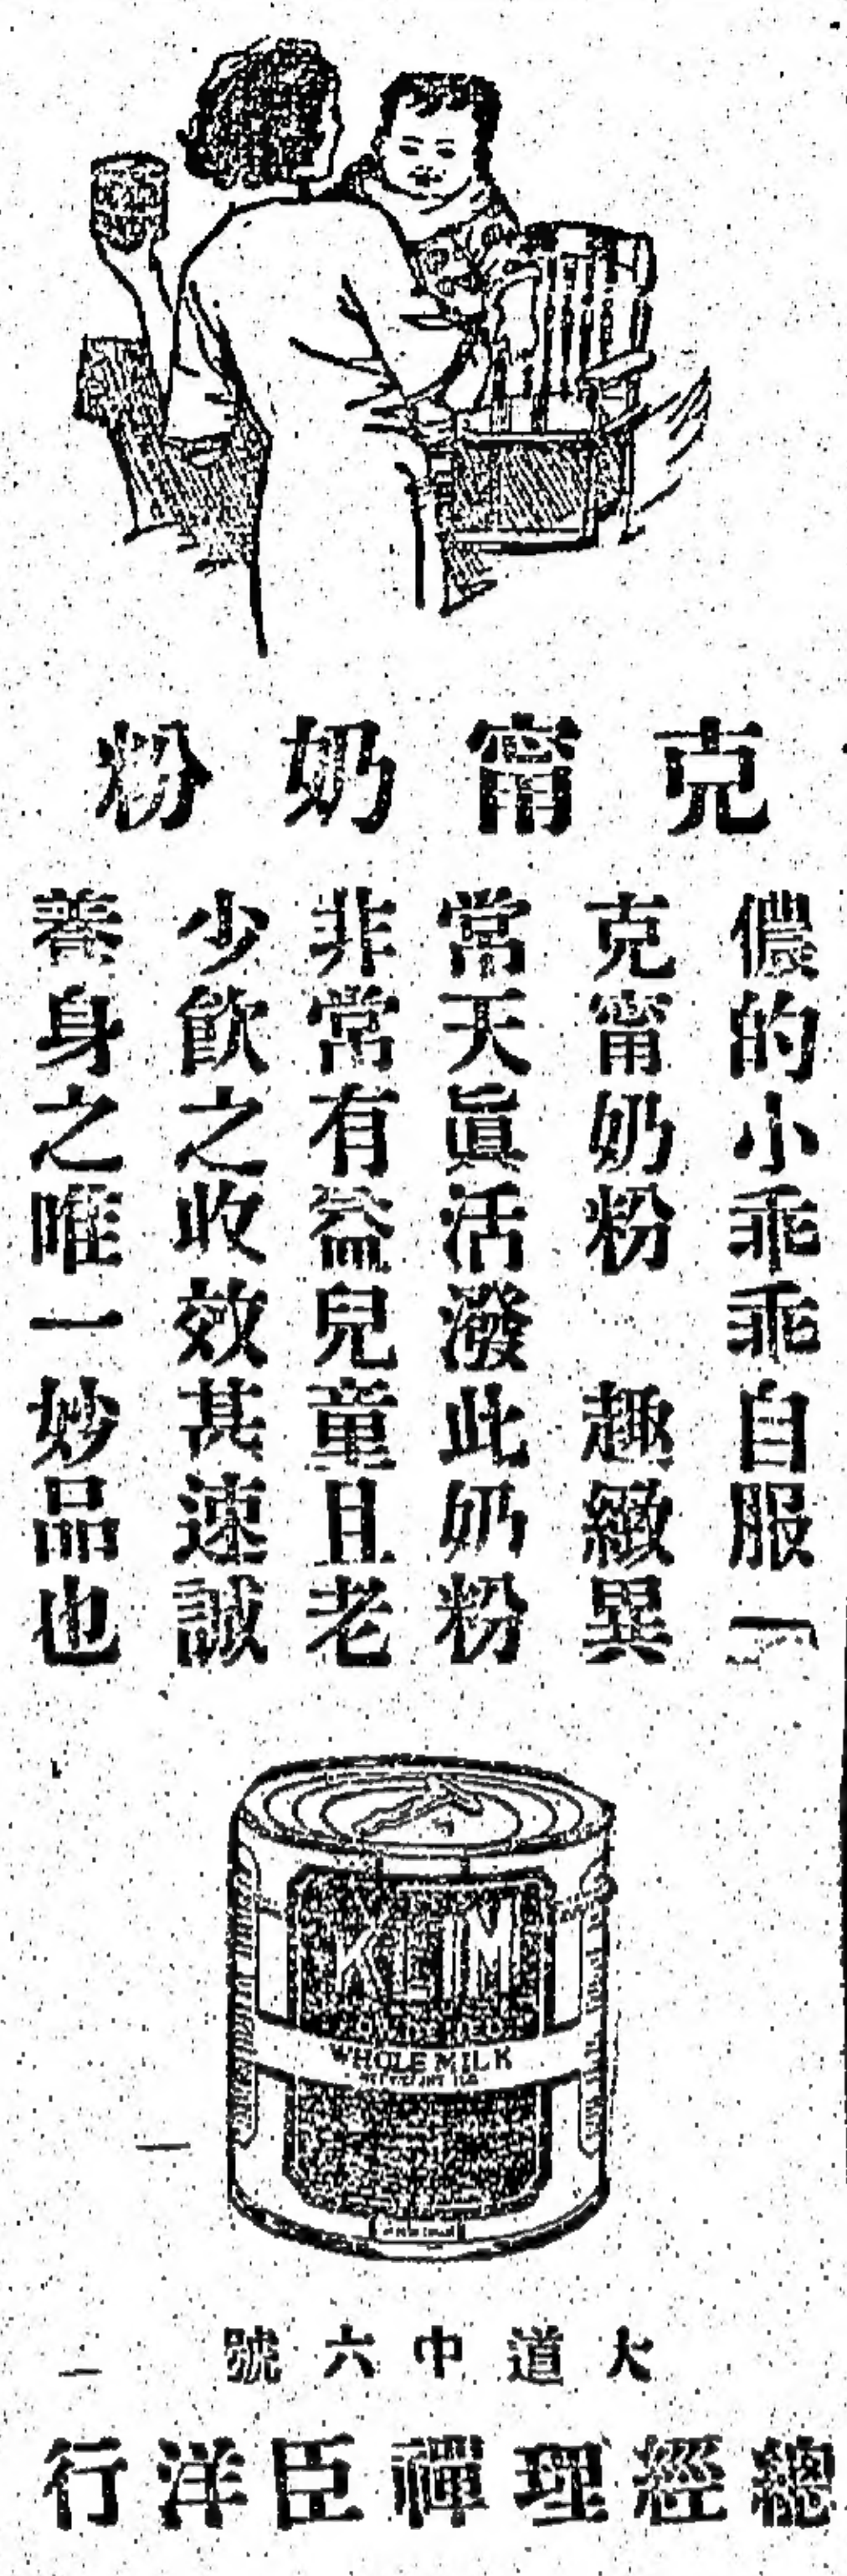 克甯奶粉
儂的小乖乖自服「
克甯奶粉　趣緻異
常天眞活潑此奶粉
非常有益兒童且老
少飲之收效甚速誠
養身之唯一妙品也
KLIM
POWDERED
WHOLE MILK
大道中六號
總經理禪臣洋行